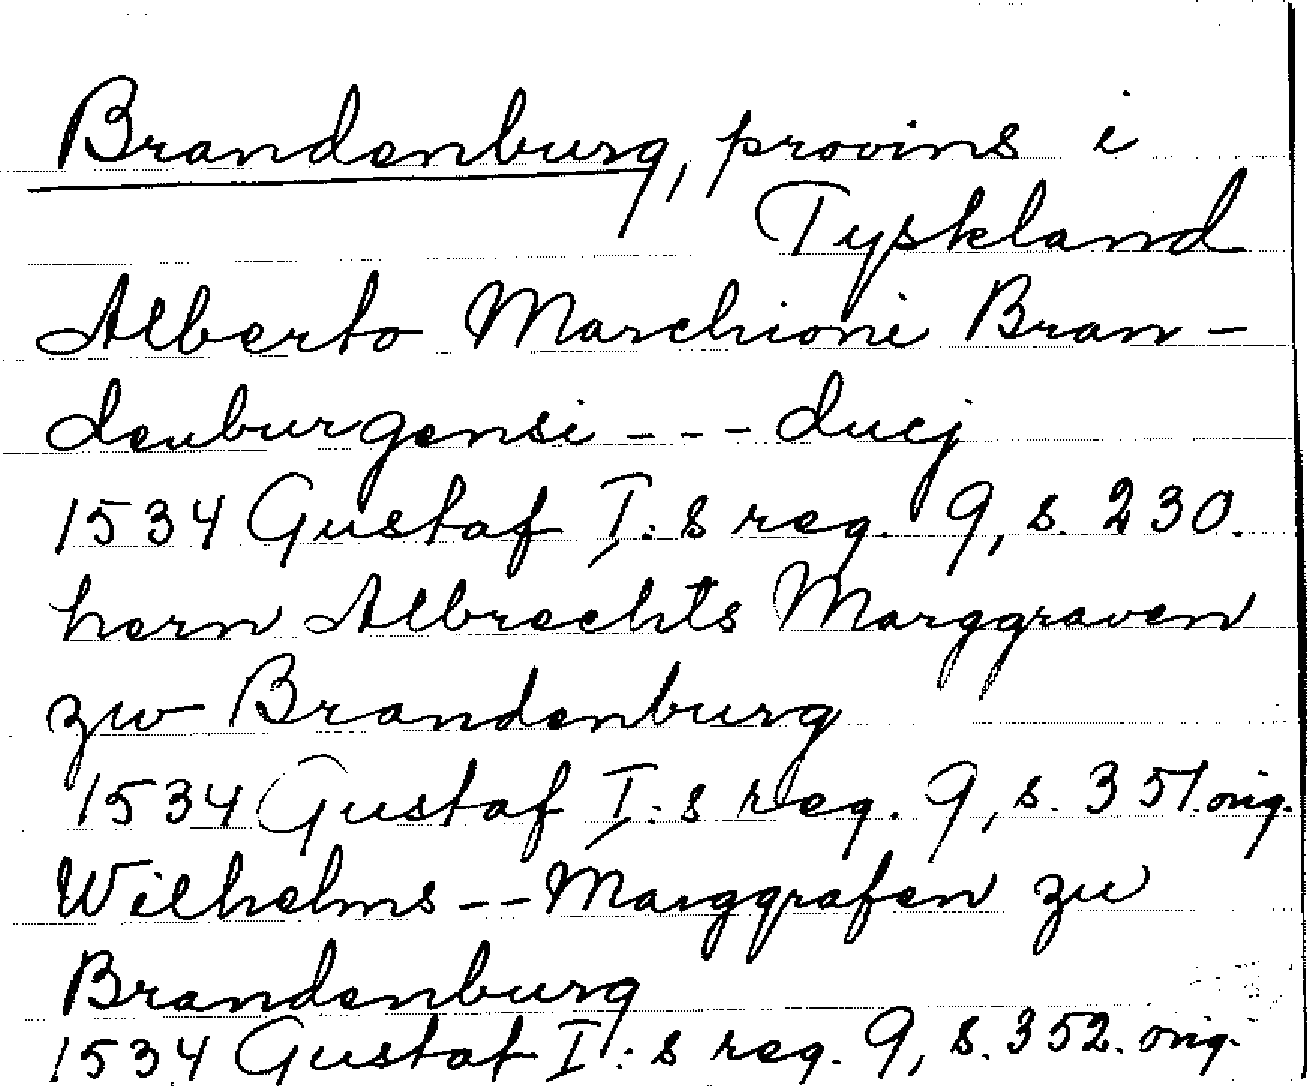 Brandenburg, provins i
Tyskland
Alberto Marchioni Bran-
denburgensi --- ducj
1534 Gustaf I:s reg. 9, s. 230.
hern Albrechts Marggraven
zw Brandenburg
1534 Gustaf I:s reg. 9, s. 351. orig.
Wilhelms -- Marggrafen zu
Brandenburg
1534 Gustaf I:s reg. 9, s. 352. orig.